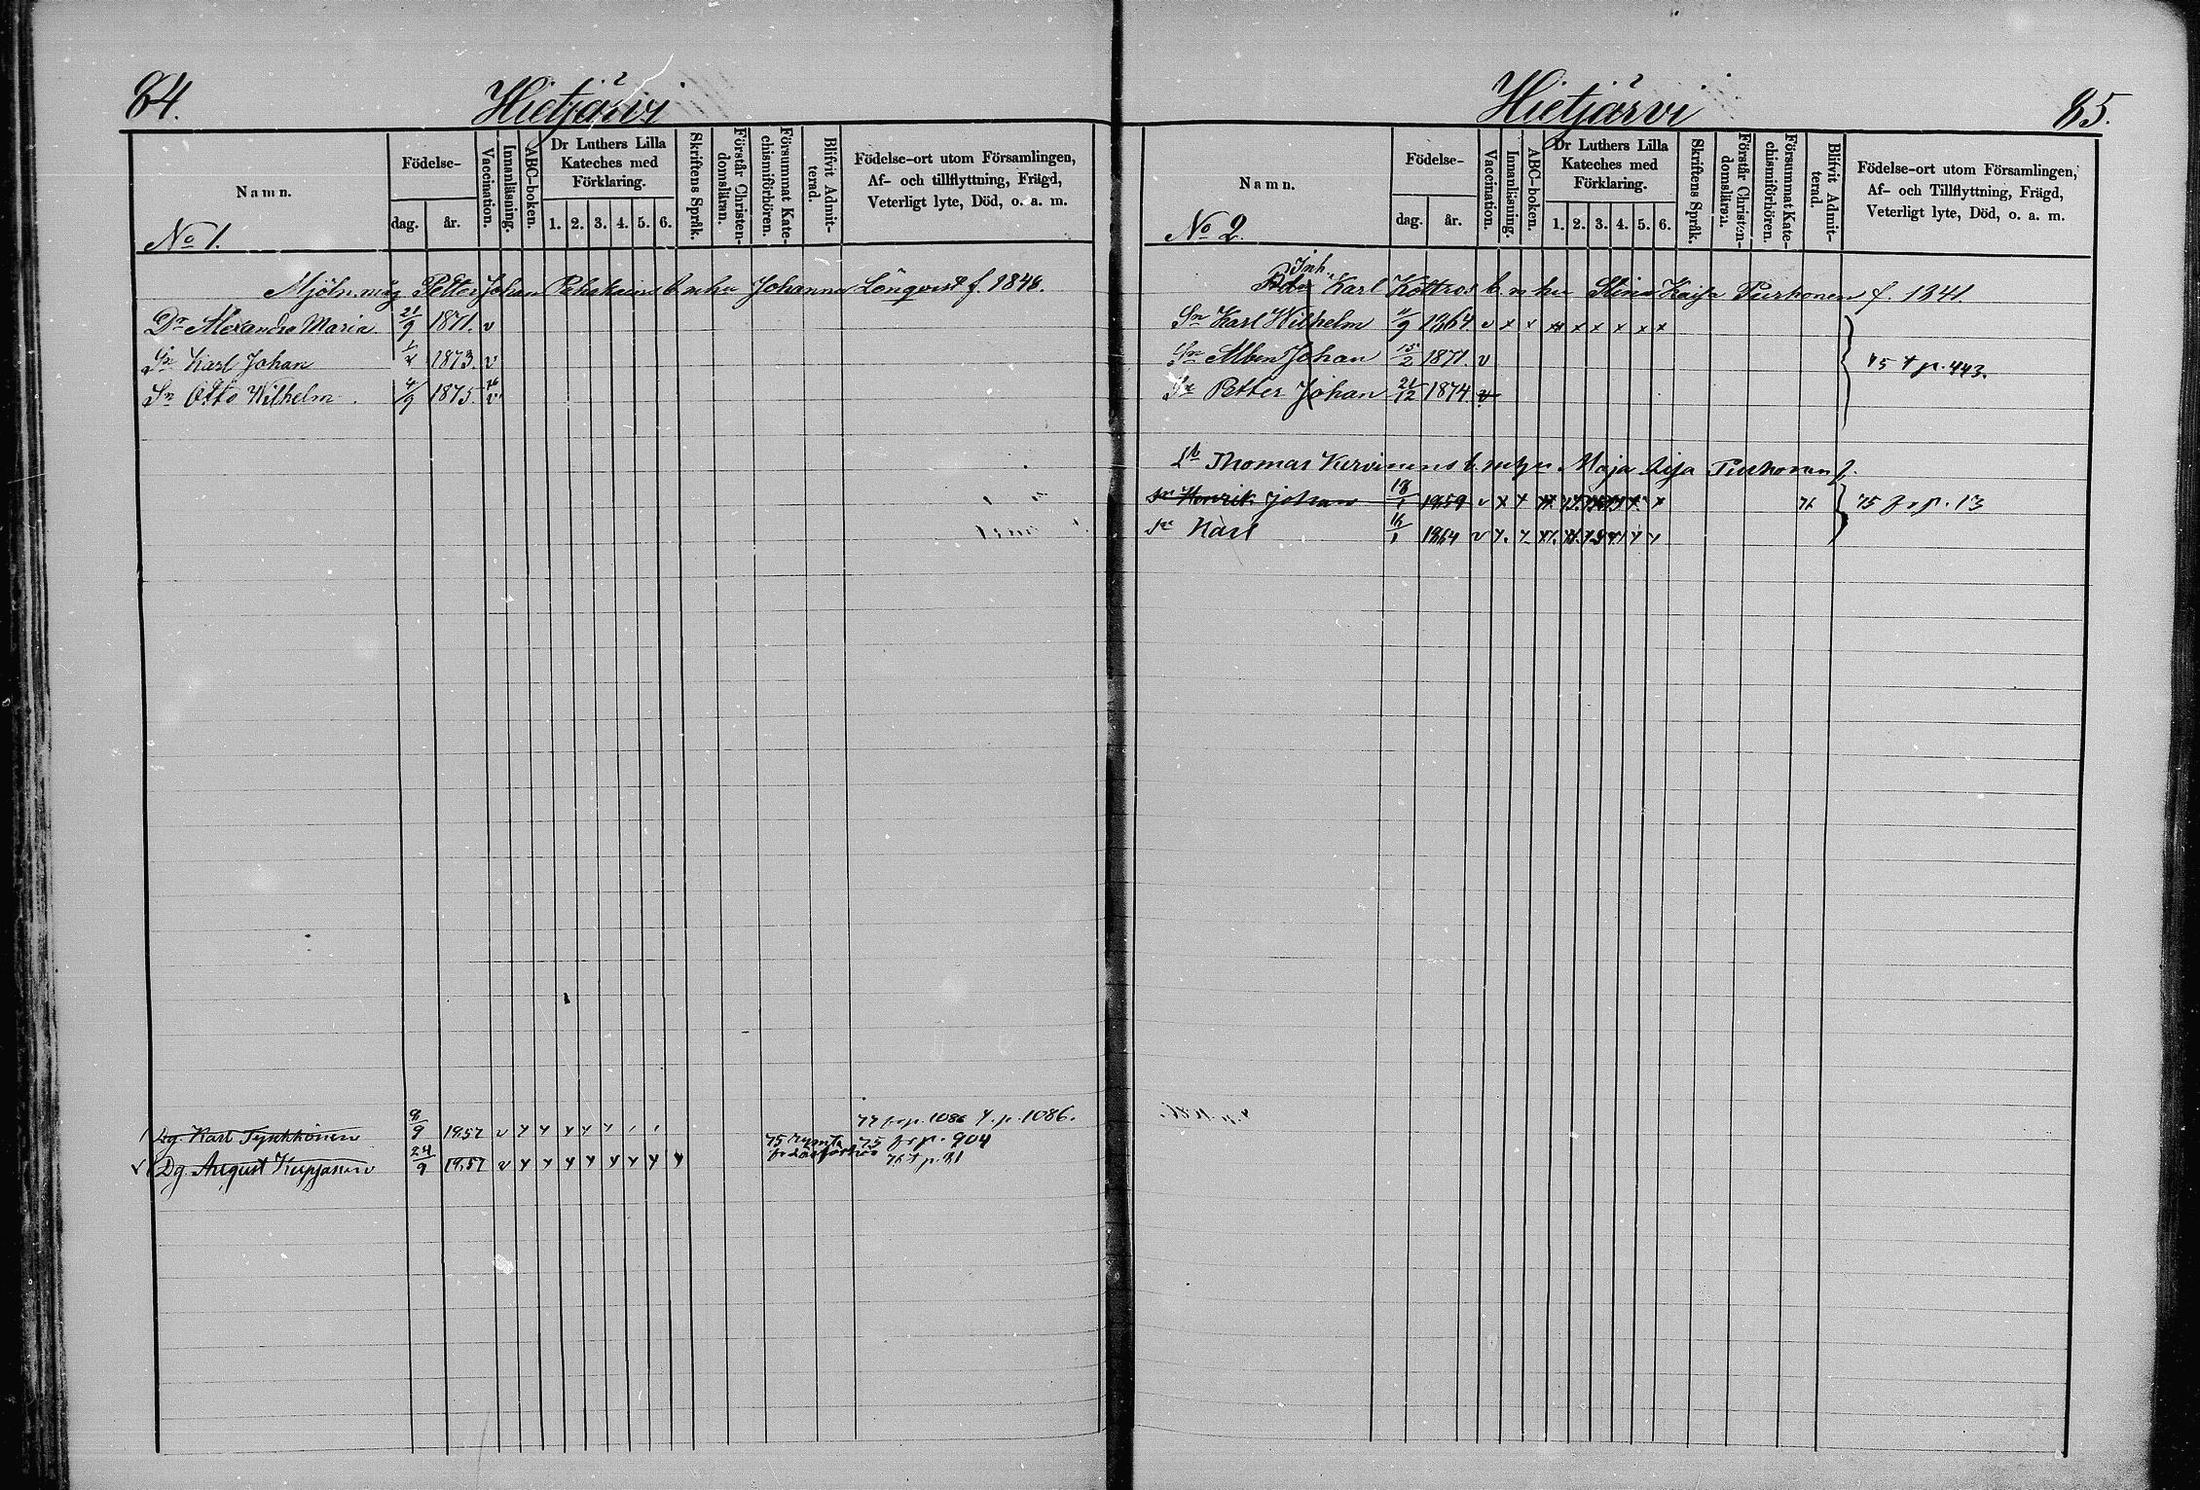 84.
Hietjärvi
Namn.
Födelse-
dag.
år.
Vaccination.
Innanläsning.
ABC-boken.
Dr Luthers Lilla
Kateches med
Förklaring.
1. 2. 3. 4. 5. 6.
Skriftens Språk.
Förstår Christen-
domsläran.
Försummat Kate-
chismiförhören.
Blifvit Admit-
terad.
Födelse-ort utom Församlingen,
Af- och tillflyttning, Frägd,
Veterligt lyte, Död, o. a. m.
No 1.
Petter Johan b. m. hu Johanna Lönqvist f. 1848.
Dr Alexandra Maria 21/9 1871. v
Sn Karl Johan 1873. v
Sn Otto Wilhelm 4/9 1875 v
77 fr p. 1086 t. p. 1086.
Dg. Karl Tynkkönen 8/9 1857 v
75 fr p. 904
Dg. August 24/9 1857 v
76 t p. 31
85.
Hietjärvi
Namn.
Födelse-
dag.
år.
Vaccination.
Innanläsning.
ABC-boken.
Dr Luthers Lilla
Kateches med
Förklaring.
1. 2. 3. 4. 5. 6.
Skriftens Språk.
Förstår Christen-
domsläran.
Försummat Kate-
chismiförhören.
Blifvit Admit-
terad.
Födelse-ort utom Församlingen,
Af- och Tillflyttning, Frägd,
Veterligt lyte, Död, o. a. m.
No 2.
Inh.
Karl Kottros b. m hu Stina Kaisa Purhonen f. 1841.
Sn Karl Wilhelm 1864 v x x x x x x x x
Sn Alben Johan 15/2 1871. v
75 t p. 443.
Sn Petter Johan 21/12 1874 v
Thomas Kervinens b. m hu Maja Lisa Purhonen f.
Sn Henrik Johan 18/1 1859 v x x
76
75 fr p. 13
Sn Karl 16/1 1864 v